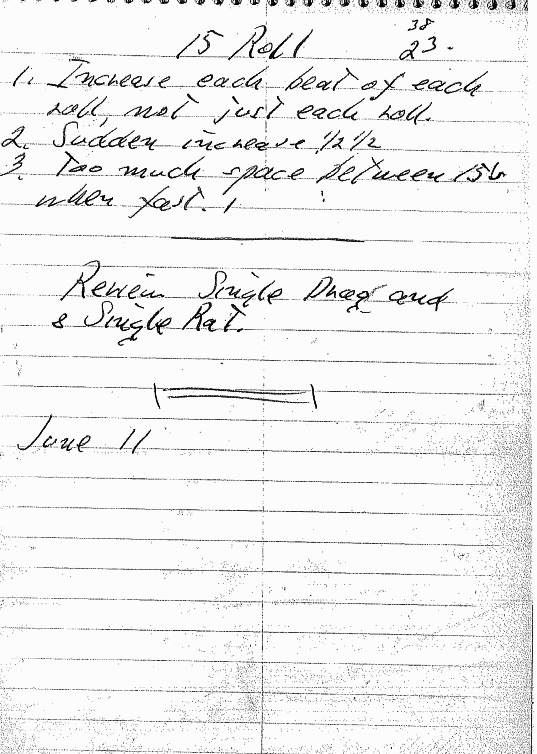 38
15 Roll 23.
1. Increase each beat of each
roll, not just each roll.
2. Sudden increase 1/2 1/2
3. Too much space between 15
when fast.
Review Single Drag and
& Single Rat.
June 11